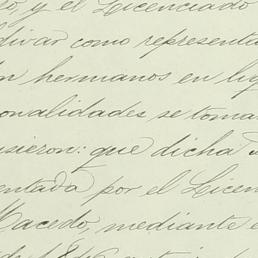 o, y el Licenciado
divar como representa
n hermanos en liq
onalidades se toma
usieron: que dicha
entada por el Licen
Macedo, mediante e